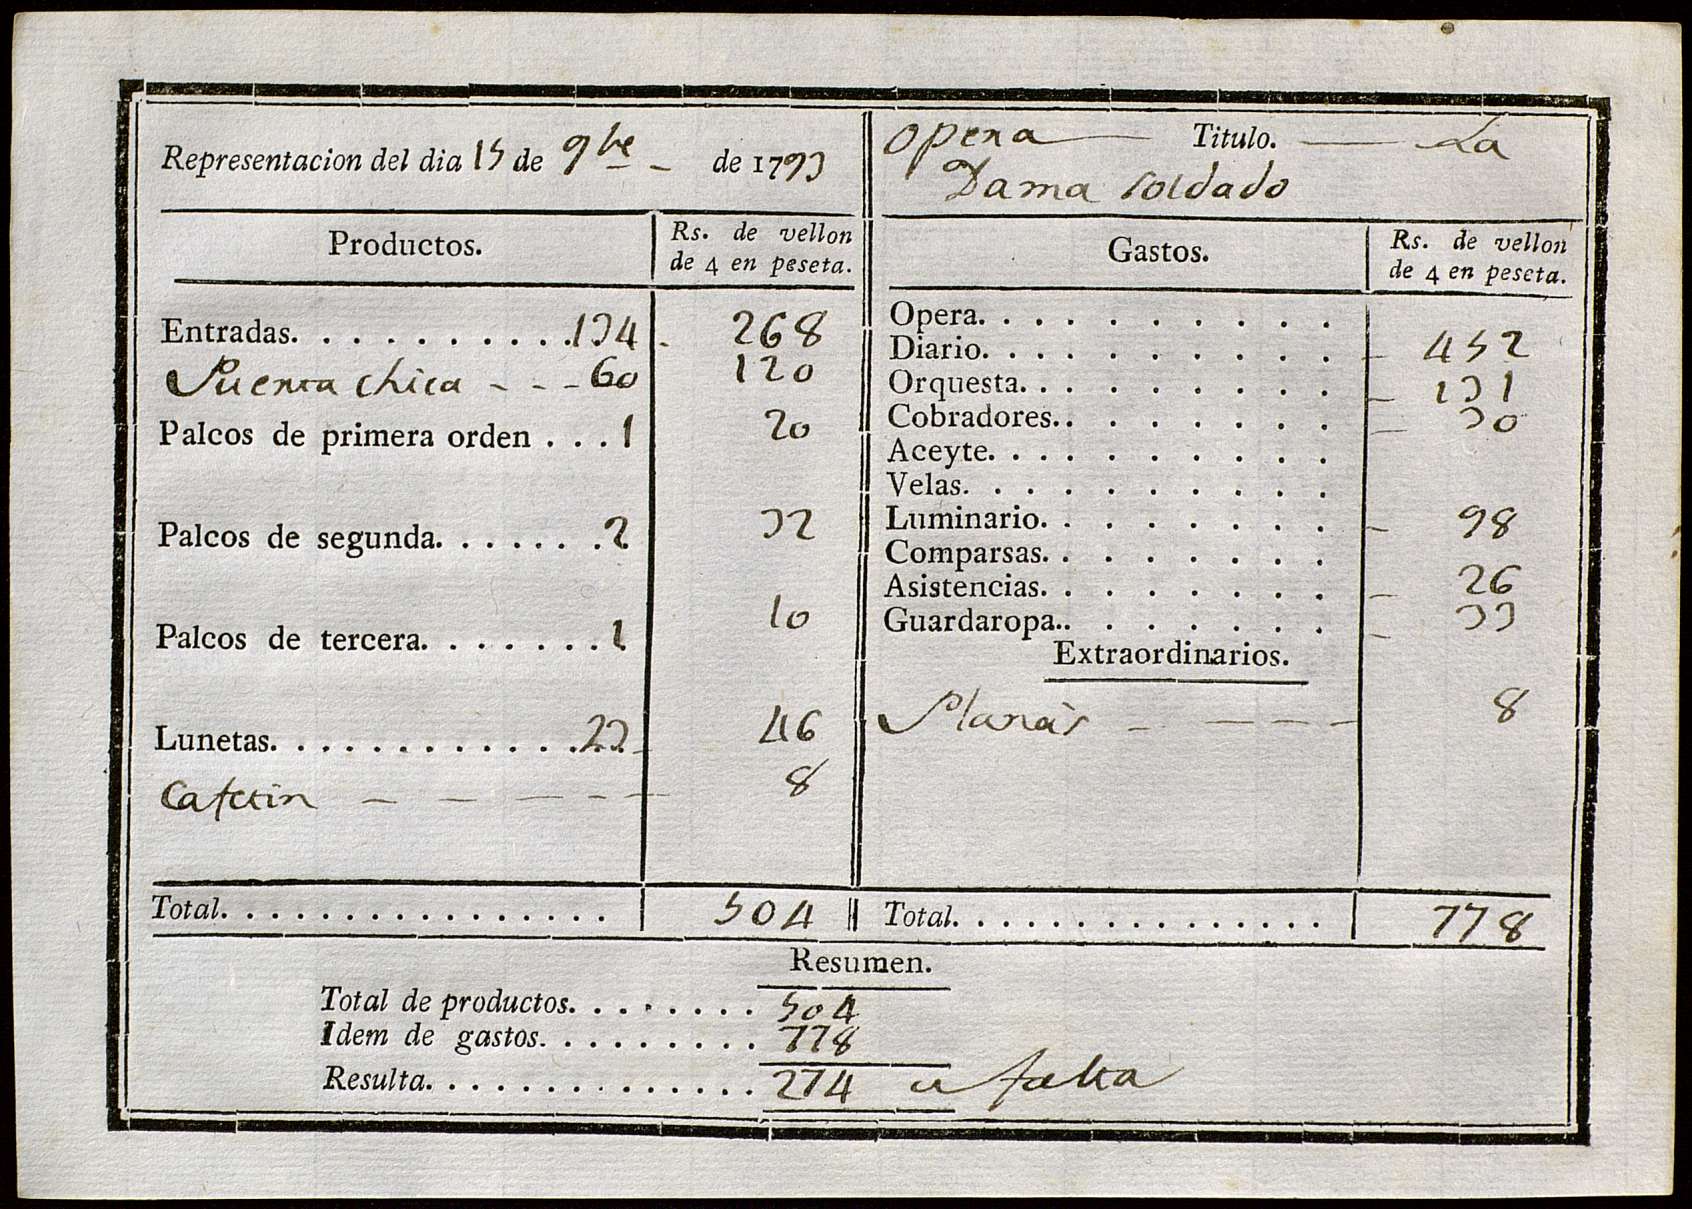 Representacion del dia 15 de 9bre de 1793
Opera Titulo. La
Dama soldado
Productos. Rs. de vellon
de 4 en peseta.
Entradas. . . . . . . . . . 134 268
Puerta chica - - - 60 120
Palcos de primera orden . . . 1 20
Palcos de segunda. . . . . . . 2 32
Palcos de tercera. . . . . . . 1 10
Lunetas. . . . . . . . . . . . 23 46
Cafetin - - - - - 8
Total. . . . . . . . . . . . . . . . 504
Gastos. Rs. de vellon
de 4 en peseta.
Opera. . . . . . . . . .
Diario. . . . . . . . . . 452
Orquesta. . . . . . . . . 131
Cobradores.. . . . . . . . 30
Aceyte. . . . . . . . . .
Velas. . . . . . . . . .
Luminario. . . . . . . . 98
Comparsas. . . . . . . .
Asistencias. . . . . . . . 26
Guardaropa.. . . . . . . 33
Extraordinarios.
Planàs - - - - 8
Total. . . . . . . . . . . . . . . 778
Resumen.
Total de productos. . . . . . . . 504
Idem de gastos. . . . . . . . . 778
Resulta. . . . . . . . . . . . . . 274 a falta